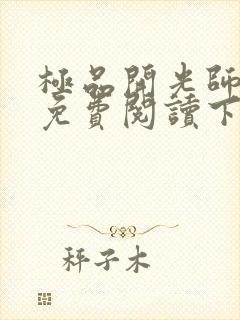 極品開光師
免費閱讀下
秤子木